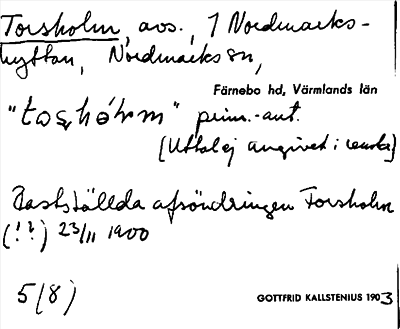 Torsholm, avs., 1 Nordmarks-
hyttan, Nordmarks sn,
Färnebo hd, Värmlands län
"toʂhólm" prim.-aut.
(Uttal ej angivet i
Fastställda afsöndringen Forsholm
(!?) 23/11 1900
5(8)
GOTTFRID KALLSTENIUS 1903